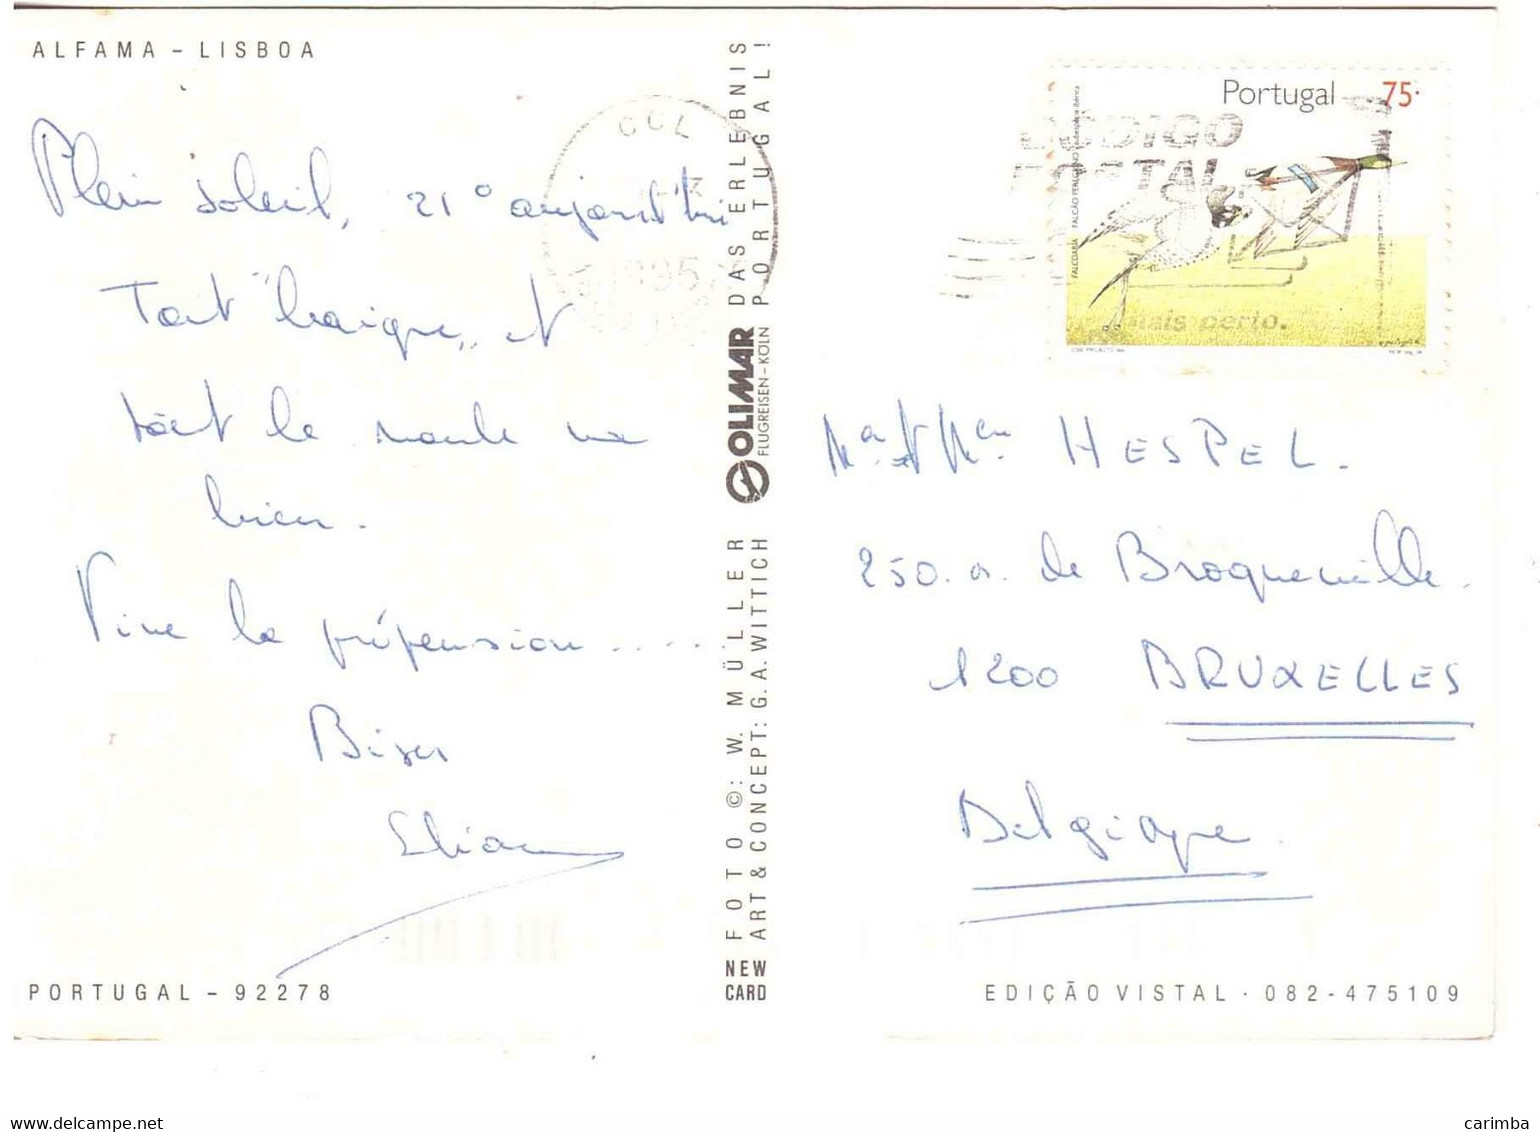 ALFAMA - LISBOA
Plein soleil, 21° aujourd'hui
Tout baigne, et
tout le monde va
bien.
Vive la prépension.....
Bises
PORTUGAL - 92278
DAS ERLEBNIS
PORTUGAL!
OLIMAR
FLUGREISEN-KÖLN
FOTO ©: W. MÜLLER
ART & CONCEPT: G.A.WITTICH
NEW
CARD
1995
Portugal 75.
CÓDIGO
POSTAL
mais perto.
HESPEL.
250. a. de Broqueville.
1200 BRUXELLES
Belgique.
EDIÇÃO VISTAL · 082-475109
delcampe.net
carimba